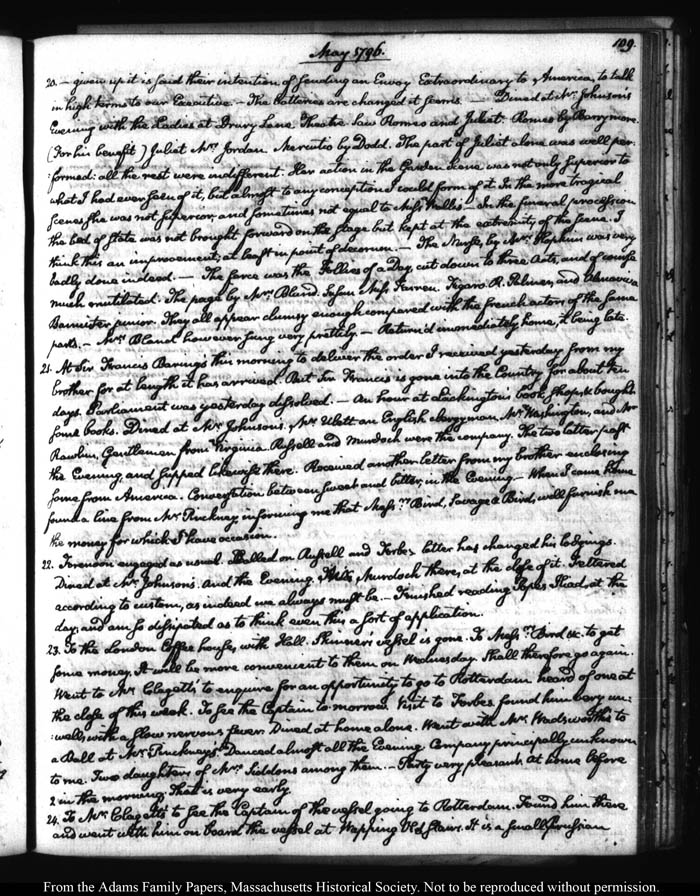 May 1796.
109.
20. — given up it is said their intention of sending an Envoy Extraordinary to America, to talk
in high terms to our Executive. — The batteries are changed it seems. — Dined at Mr. Johnson's
Evening with the Ladies at Drury Lane Theatre. Saw Romeo and Juliet. Romeo by Barrymore.
(For his benefit) Juliet Mrs. Jordan. Mercutio by Dodd. The part of Juliet alone was well per:
:formed: all the rest were indifferent. Her action in the Garden scene was not only superior to
what I had ever seen of it, but almost to any conception I could form of it. In the more tragical
scenes she was not superior, and sometimes not equal to Miss Wallis. — In the funeral procession
the bed of state was not brought forward on the stage but kept at the extremity of the scene. I
think this an improvement; at least in point of decorum. — The Nurse, by Mrs. Hopkins was very
badly done indeed. — The farce was the Follies of a Day, cut down to three Acts, and of course
much mutilated. The page by Mrs. Bland. Susan Miss Farren. Figaro R. Palmer, and Almaviva
Bannister junior. They all appear clumsy enough compared with the french actors of the same
parts. — Mrs. Bland however sung very prettily. — Return'd immediately home, it being late.
21. At Sir Francis Barings this morning to deliver the order I received yesterday from my
brother for at length it has arrived. But Sir Francis is gone into the Country for about ten
days. Parliament was yesterday dissolved. — An hour at Lackington book shop, & bought
some books. Dined at Mr. Johnson's. Mr. an English clergyman. Mr. Washington, and Mr.
Rawlins, Gentlemen from Virginia. Russell and Murdoch were the company. The two latter past
the Evening, and supped likewise there. Received another letter from my brother enclosing
some from America. Conversation between sweet and bitter, in the Evening. — When I came home
found a line from Mr. Pinckney, informing me that Messrs. Bird, Savage & Bird, will furnish me
the money for which I have occasion.
22. Forenoon engaged as usual. Called on Russell and Forbes latter has changed his lodgings.
Dined at Mr. Johnson's. And the Evening. Murdoch there, at the close of it. Fettered
according to custom, as indeed we always must be. — Finished reading Popes Iliad, at the
day, and am so dissipated as to think even this a sort of application.
23. To the London Coffee house, with Hall. Skinner's vessel is gone. To Messrs. Bird &c. to get
some money. It will be more convenient to them on Wednesday. Shall therefore go again.
Went to Mr. Clagett's to enquire for an opportunity to go to Rotterdam heard of one at
the close of this week. To see the Captain to-morrow. Visit to Forbes found him very un:
:well, with a slow nervous fever. Dined at home alone. Went with Mrs. Wadsworth's to
a Ball at Mr. Pinckney's. Danced almost all the Evening. Company principally unknown
to me. Two daughters of Mrs. Siddons among them. — Party very pleasant. At home before
2 in the morning. That is very early.
24. To Mr. Clagett's to see the Captain of the vessel going to Rotterdam. Found him there
and went with him on board the vessel at Wapping Old Stairs. It is a small Prussian
From the Adams Family Papers, Massachusetts Historical Society. Not to be reproduced without permission.